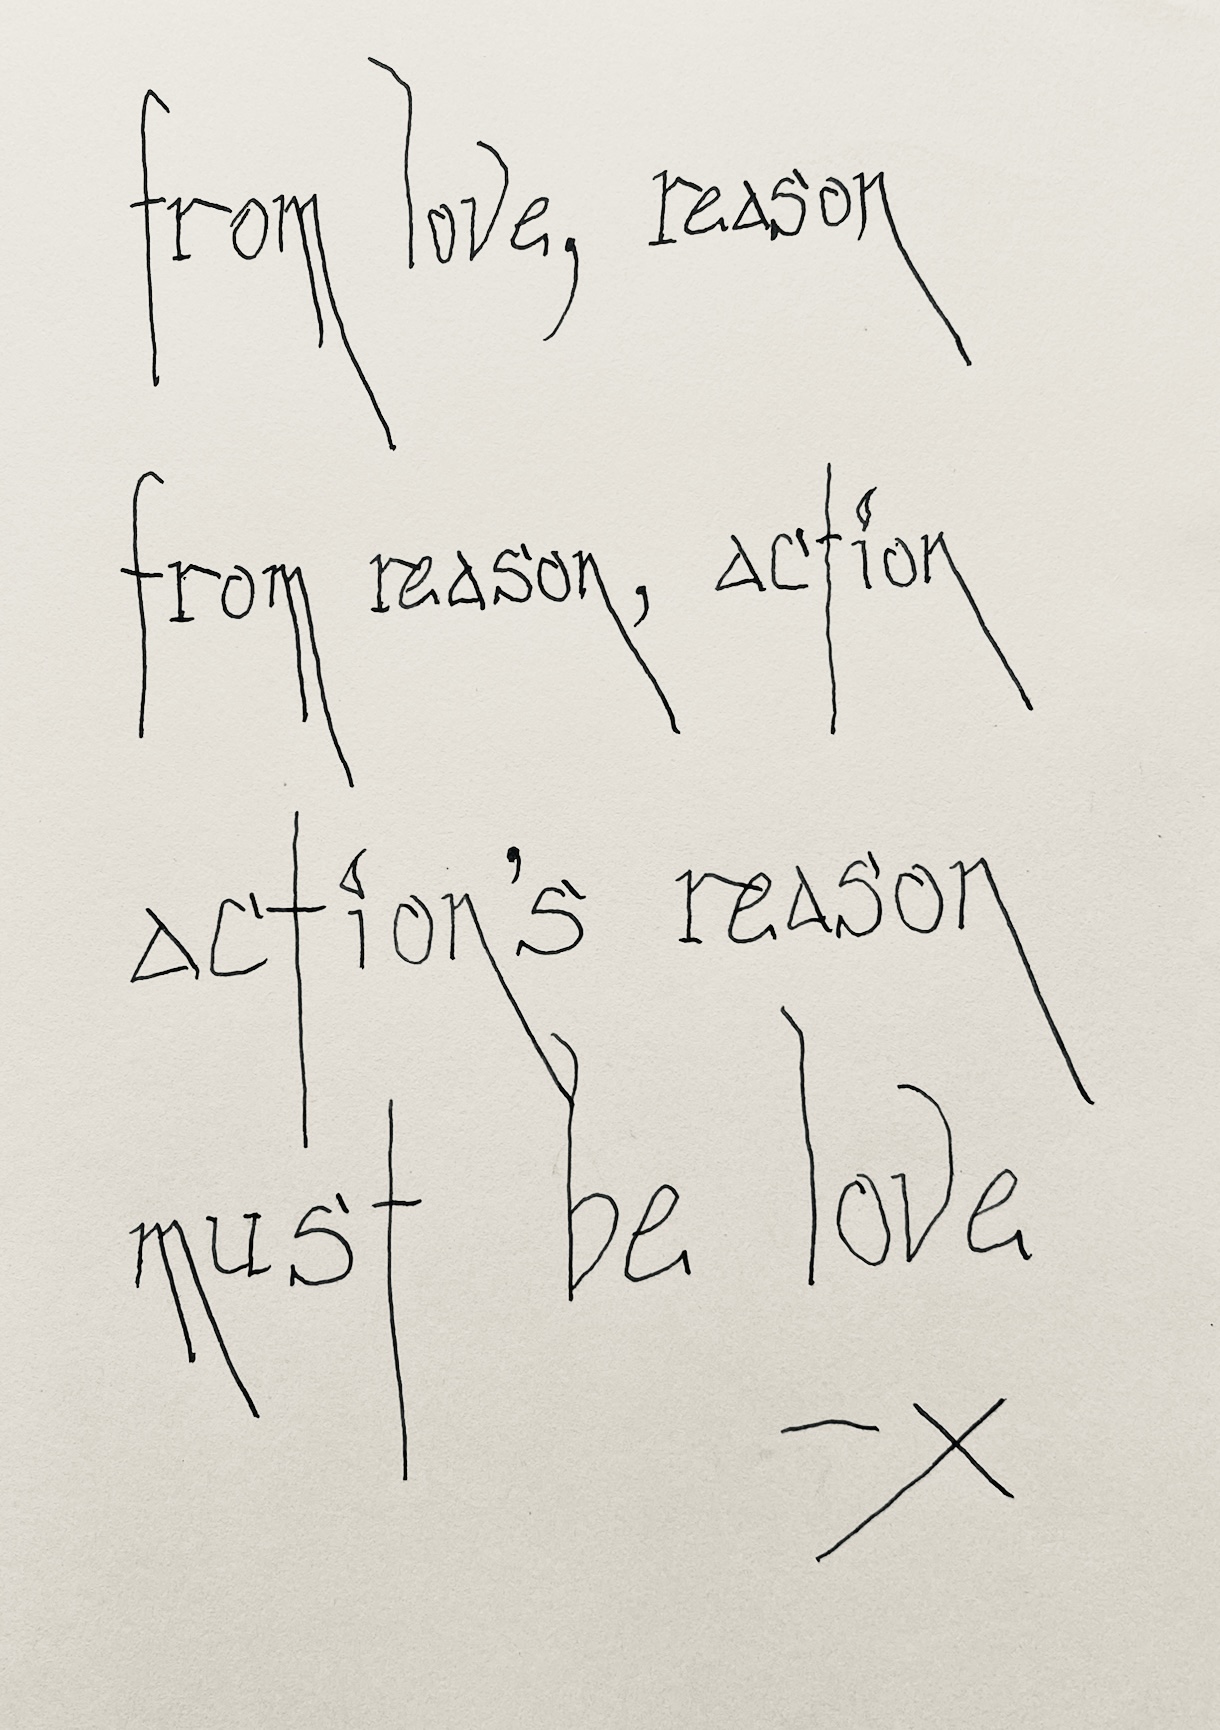 from love, reason
from reason, action
action's reason
must be love
-x